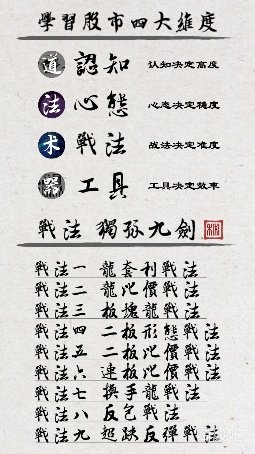 學習股市四大維度
道 認知 认知决定高度
法 心態 心态决定精度
术 戰法 战法决定准度
器 工具 工具决定效率
戰法 獨孤九劍
戰法一 龍套利戰法
戰法二 龍比價戰法
戰法三 板塊龍戰法
戰法四 二板形態戰法
戰法五 二板比價戰法
戰法六 連板比價戰法
戰法七 換手龍戰法
戰法八 反包戰法
戰法九 超跌反彈戰法